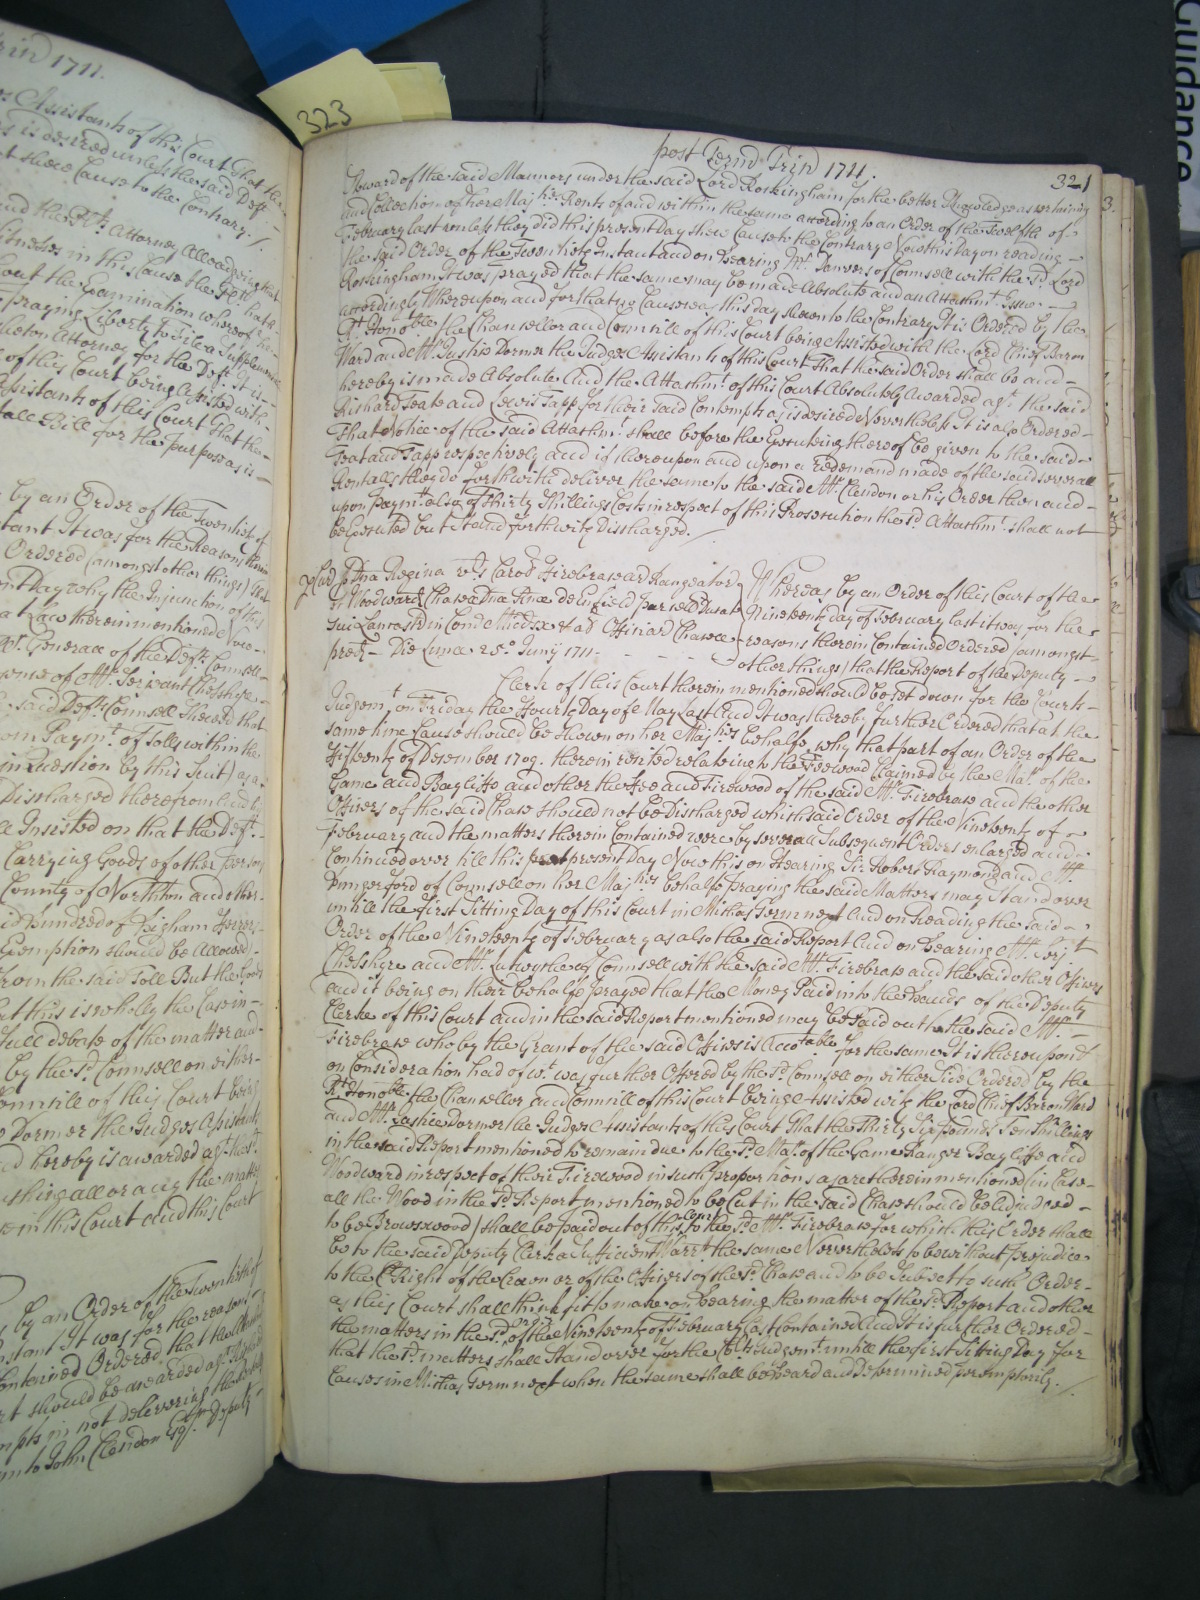 Guidance
323
Trin 1711.
Assistants of this Court That the
is desired unless the said Deft
shew Cause to the Contrary. /
and the Plts Attorney Alleadgeing that
Witnesses in this Cause the Plt hath
out the Examination whereof he
Praying Liberty to File a Supplemental
Attorney for the Deft. It is
of this Court being Assisted with
Assistants of this Court That the
Bill for the purpose as is
by an Order of the Twentieth of
Instant It was for the Reasons therein
Ordered (amongst other things) that
Day why the Injunction of this
therein mentioned
Generall of the Defts Councell
of Mr. Serjeant Cheshyre
said Defts Councell Shewed that
from Paymt. of Tolls within the
in Question by this Suit) as a
Discharged therefrom And
Insisted on that the Deft.
Carrying Goods of other persons
County of Northton and other
Hundred of Higham Ferrers
Exemption should be Allowed
from the said Toll But the Goods
that this is wholly the Case in
full debate of the matter and
by the sd. Councell on either
Councill of this Court being
Dormer the Judges Assistants
hereby is awarded agt. the
all or any the matters
in this Court And this Court
by an Order of the Twentieth of
Instant It was for the reasons
Contained Ordered that the
should be awarded agt. Richard
in not delivering the
to John Clendon Esqr. Deputy
post Termd Trin 1711. 321
Steward of the said Mannors under the said Lord Rockingham for the better Knowledge ascertaining
and Collection of her Majties Rents of and within the same according to an Order of the Twelfth of
February last unless they did this present Day shew Cause to the Contrary Now this Day on reading
the said Order of the Twentieth Instant and on Hearing Mr. Danvers of Councell with the sd. Lord
Rockingham It was prayed that the same may be made Absolute and an Attachmt. Issue
accordingly Whereupon and for that no Cause was this day shewn to the Contrary It is Ordered by the
Rt. Honoble. the Chancellor and Councill of this Court being Assisted with the Lord Chief Baron
Ward and Mr. Justice Dormer the Judges Assistants of this Court That the said Order shall be and
hereby is made Absolute And the Attachmt. of this Court Absolutely Awarded agt. the said
Richard Teate and Lewis Tapp for their said Contempts as is desired Nevertheless It is also Ordered
That Notice of the said Attachmt. shall before the Executing thereof be given to the said
Teat and Tapp respectively and if thereupon and upon a redemand made of the said severall
Rentalls they do forthwith deliver the same to the said Mr. Clendon or his Order then and
upon Paymt. also of Thirty Shillings Costs in respect of this Prosecution the sd. Attachmt. shall not
be Executed but Stand forthwith Discharged. /
Dna Regina vs. Carod Firebrase ar Rangeator
of Woodward Chaceæ Dnæ Reginæ de Enfield parcell Ducat
sui Lancastr in Com Middx & ad Officiar Chaceæ
pred. Die Lunæ 25o. Junij 1711.
Whereas by an Order of this Court of the
Nineteenth day of February last it was for the
reasons therein Contained Ordered (amongst
other things) that the Report of the Deputy
Clerk of this Court therein mentioned should be set down for the Courts
Judgemt. on Friday the Fourth Day of May Last And It was thereby further Ordered that at the
same time Cause should be shown on her Majties behalfe why that part of an Order of the
Fifteenth of December 1709. therein recited relateing to the Feewood Claimed by the Mar. of the
Game and Bayliffe and other the Fee and Firewood of the said Mr. Firebrase and the other
Officers of the said Chase should not be Discharged which said Order of the Nineteenth of
February and the matters therein Contained were by severall Subsequent Orders enlarged and
Continued over till this present Day Now this on Hearing Sir Robert Raymond and Mr.
Hungerford of Councell on her Majties behalfe praying the said Matters may Stand over
untill the First Sitting Day of this Court in Michas Terme next And on Reading the said
Order of the Nineteenth of February as also the said Report And on Hearing Mr. Serjt.
Cheshyre and Mr. Lutwythe of Councell with the said Mr. Firebrase and the said other Officers
and it being on their behalfe prayed that the Money Paid into the hands of the Deputy
Clerke of this Court and in the said Report mentioned may be paid out to the said Mr.
Firebrase who by the Grant of the said Offices is Accotable for the same It is thereupon
on Consideration had of wt. was further Offered by the sd. Councell on either Side Ordered by the
Rt. Honoble. the Chancellor and Councill of this Court being Assisted with the Lord Chief Baron Ward
and Mr. Justice Dormer the Judges Assistants of this Court That the Thirty Six pounds Ten Shillings
in the said Report mentioned to remain due to the sd. Mar. of the Game Ranger Bayliffe and
Woodward in respect of their Firewood in such proportions as are therein mentioned (in Case
all the Wood in the sd. Report mentioned to be Cut in the said Chase should be adjudged
to be Browswood) shall be paid out of this Court to the sd. Mr. Firebrase for which this Order shall
be to the said Deputy Clerk a Sufficient Warrt. the same Nevertheless to be without prejudice
to the Right of the Crown or of the Officers of the sd. Chase and to be Subject to such Order
as this Court shall think fit to make on hearing the matter of the sd. Report and other
the matters in the sd. Order of the Nineteenth of February last Contained And It is further Ordered
that the sd. matters shall Stand over for the Cots. Judgemt. untill the first Sitting Day for
Causes in Michas Term next when the same shall be Heard and Determined peremptorily. /